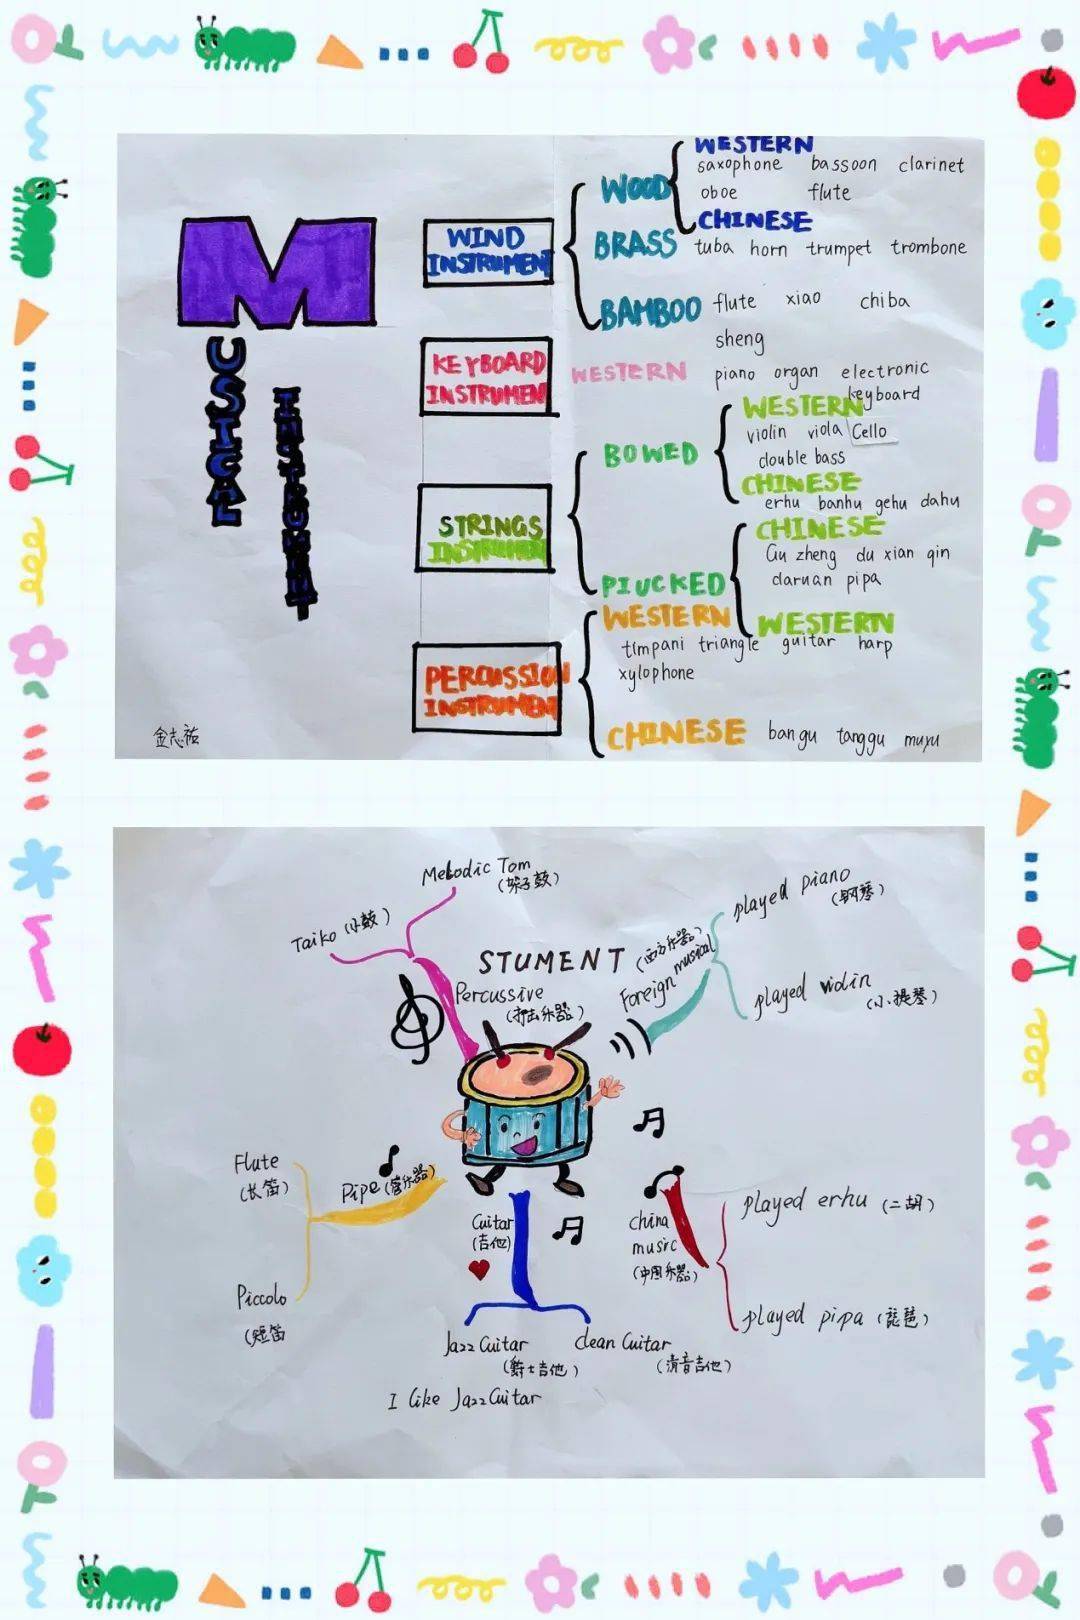 MUSICAL
INSTRUMENT
WIND
INSTRUMENT
WOOD
WESTERN
saxophone bassoon clarinet
oboe flute
CHINESE
BRASS
tuba horn trumpet trombone
BAMBOO
flute xiao chiba
sheng
KEYBOARD
INSTRUMEN
WESTERN
piano organ electronic
keyboard
STRINGS
INSTRUMEN
BOWED
WESTERN
violin viola Cello
double bass
CHINESE
erhu banhu gehu dahu
PIUCKED
CHINESE
Gu zheng du xian qin
daruan pipa
WESTERN
guitar harp
PERCUSSION
INSTRUMEN
WESTERN
timpani triangle
xylophone
CHINESE
bangu tanggu muyu
金志祐
STUMENT
Percussive
(打击乐器)
Melodic Tom
(架子鼓)
Taiko (小鼓)
Foreign musical
(西方乐器)
played piano
(钢琴)
played violin
(小提琴)
Pipe (管乐器)
Flute
(长笛)
Piccolo
(短笛
Guitar
(吉他)
Jazz Guitar
(爵士吉他)
clean Guitar
(清音吉他)
I like Jazz Guitar
China
music
(中国乐器)
played erhu (二胡)
played pipa (琵琶)